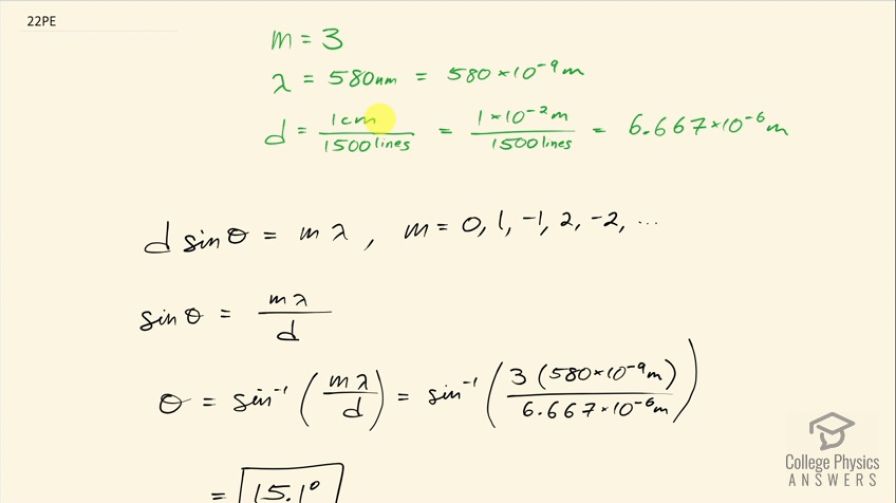 22PE
m = 3
λ = 580nm = 580×10⁻⁹m
d = 1cm / 1500 lines = 1×10⁻²m / 1500 lines = 6.667×10⁻⁶m
d sinθ = mλ, m = 0, 1, -1, 2, -2, ...
sinθ = mλ / d
θ = sin⁻¹(mλ / d) = sin⁻¹(3(580×10⁻⁹m) / 6.667×10⁻⁶m)
= 15.1°
College Physics
ANSWERS